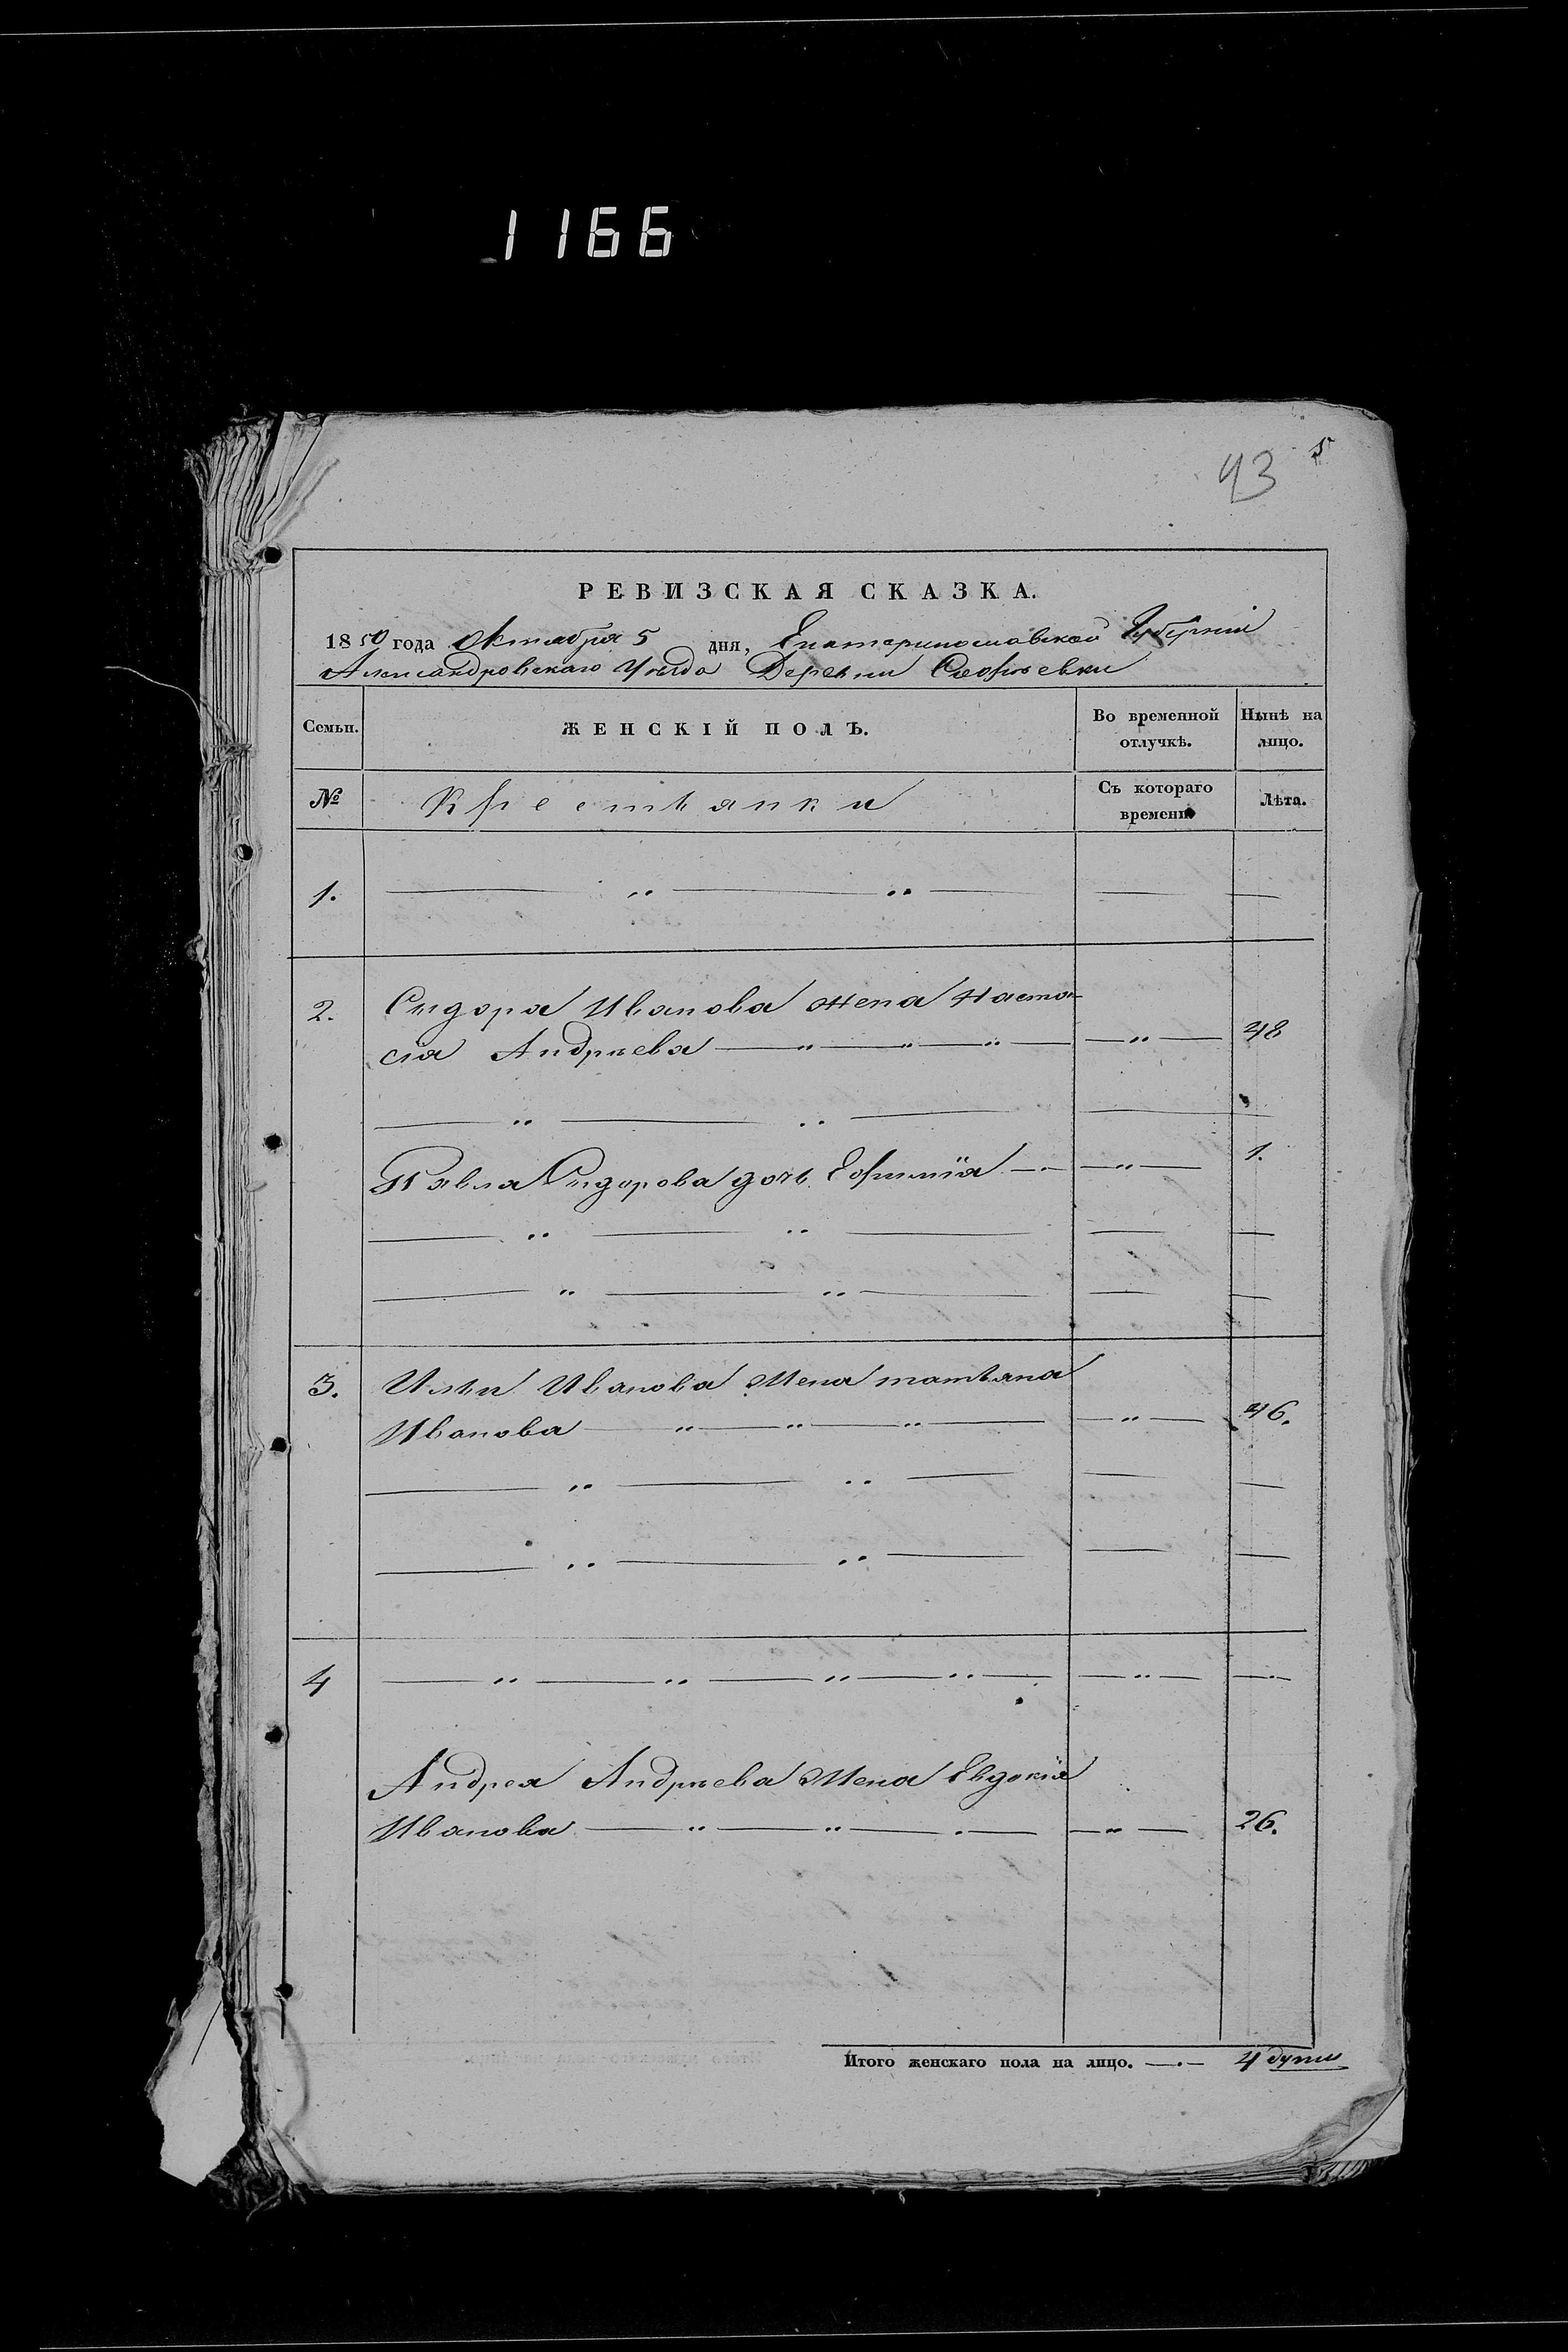 1166
43 5
РЕВИЗСКАЯ СКАЗКА.
1850 года Октября 5 дня, Екатеринославской Губерніи
Александровскаго Уѣзда Деревни Софіевки
Семьи. ЖЕНСКІЙ ПОЛЪ. Во временной отлучкѣ. Нынѣ на лицо.
№ Крестьянки Съ котораго времени Лѣта.
1. — „ — „ — — —
2. Сидора Иванова жена Наста-
сія Андреева — „ — „ — „ — — „ — 48
— „ — „ — — —
Павла Сидорова дочь Ефимія — „ — 1.
— „ — „ — — —
— „ — „ — — —
3. Ильи Иванова жена татьяна
Иванова — „ — „ — „ — — „ — 46.
— „ — „ — — —
— „ — „ — — —
4 — „ — „ — „ — „ — — „ — —
Андрея Андреева жена Евдокія
Иванова — „ — „ — „ — — „ — 26.
Итого женскаго пола на лицо. — 4 души